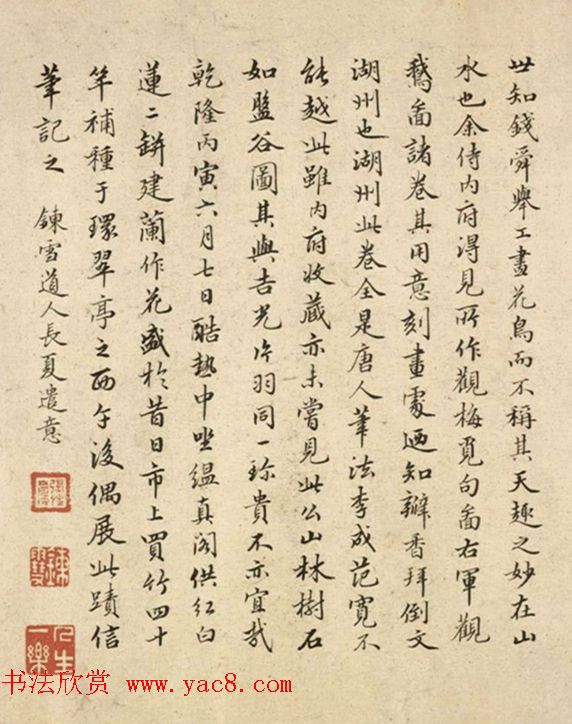 世知錢舜舉工畫花鳥而不稱其天趣之妙在山
水也余侍內府得見所作觀梅覓句圖右軍觀
鵞圖諸卷其用意刻畫處迺知瓣香拜倒文
湖州也湖州此卷全是唐人筆法李成范寬不
能越此雖內府收藏亦未嘗見此公山林樹石
如盤谷圖其與吉光片羽同一珍貴不亦宜哉
乾隆丙寅六月七日酷熱中坐縕真閣供紅白
蓮二缾建蘭作花盛於昔日市上買竹四十
竿補種于環翠亭之西午後偶展此蹟信
筆記之 鍊雪道人長夏遣意
鍊雪
人生一樂
书法欣赏 www.yac8.com